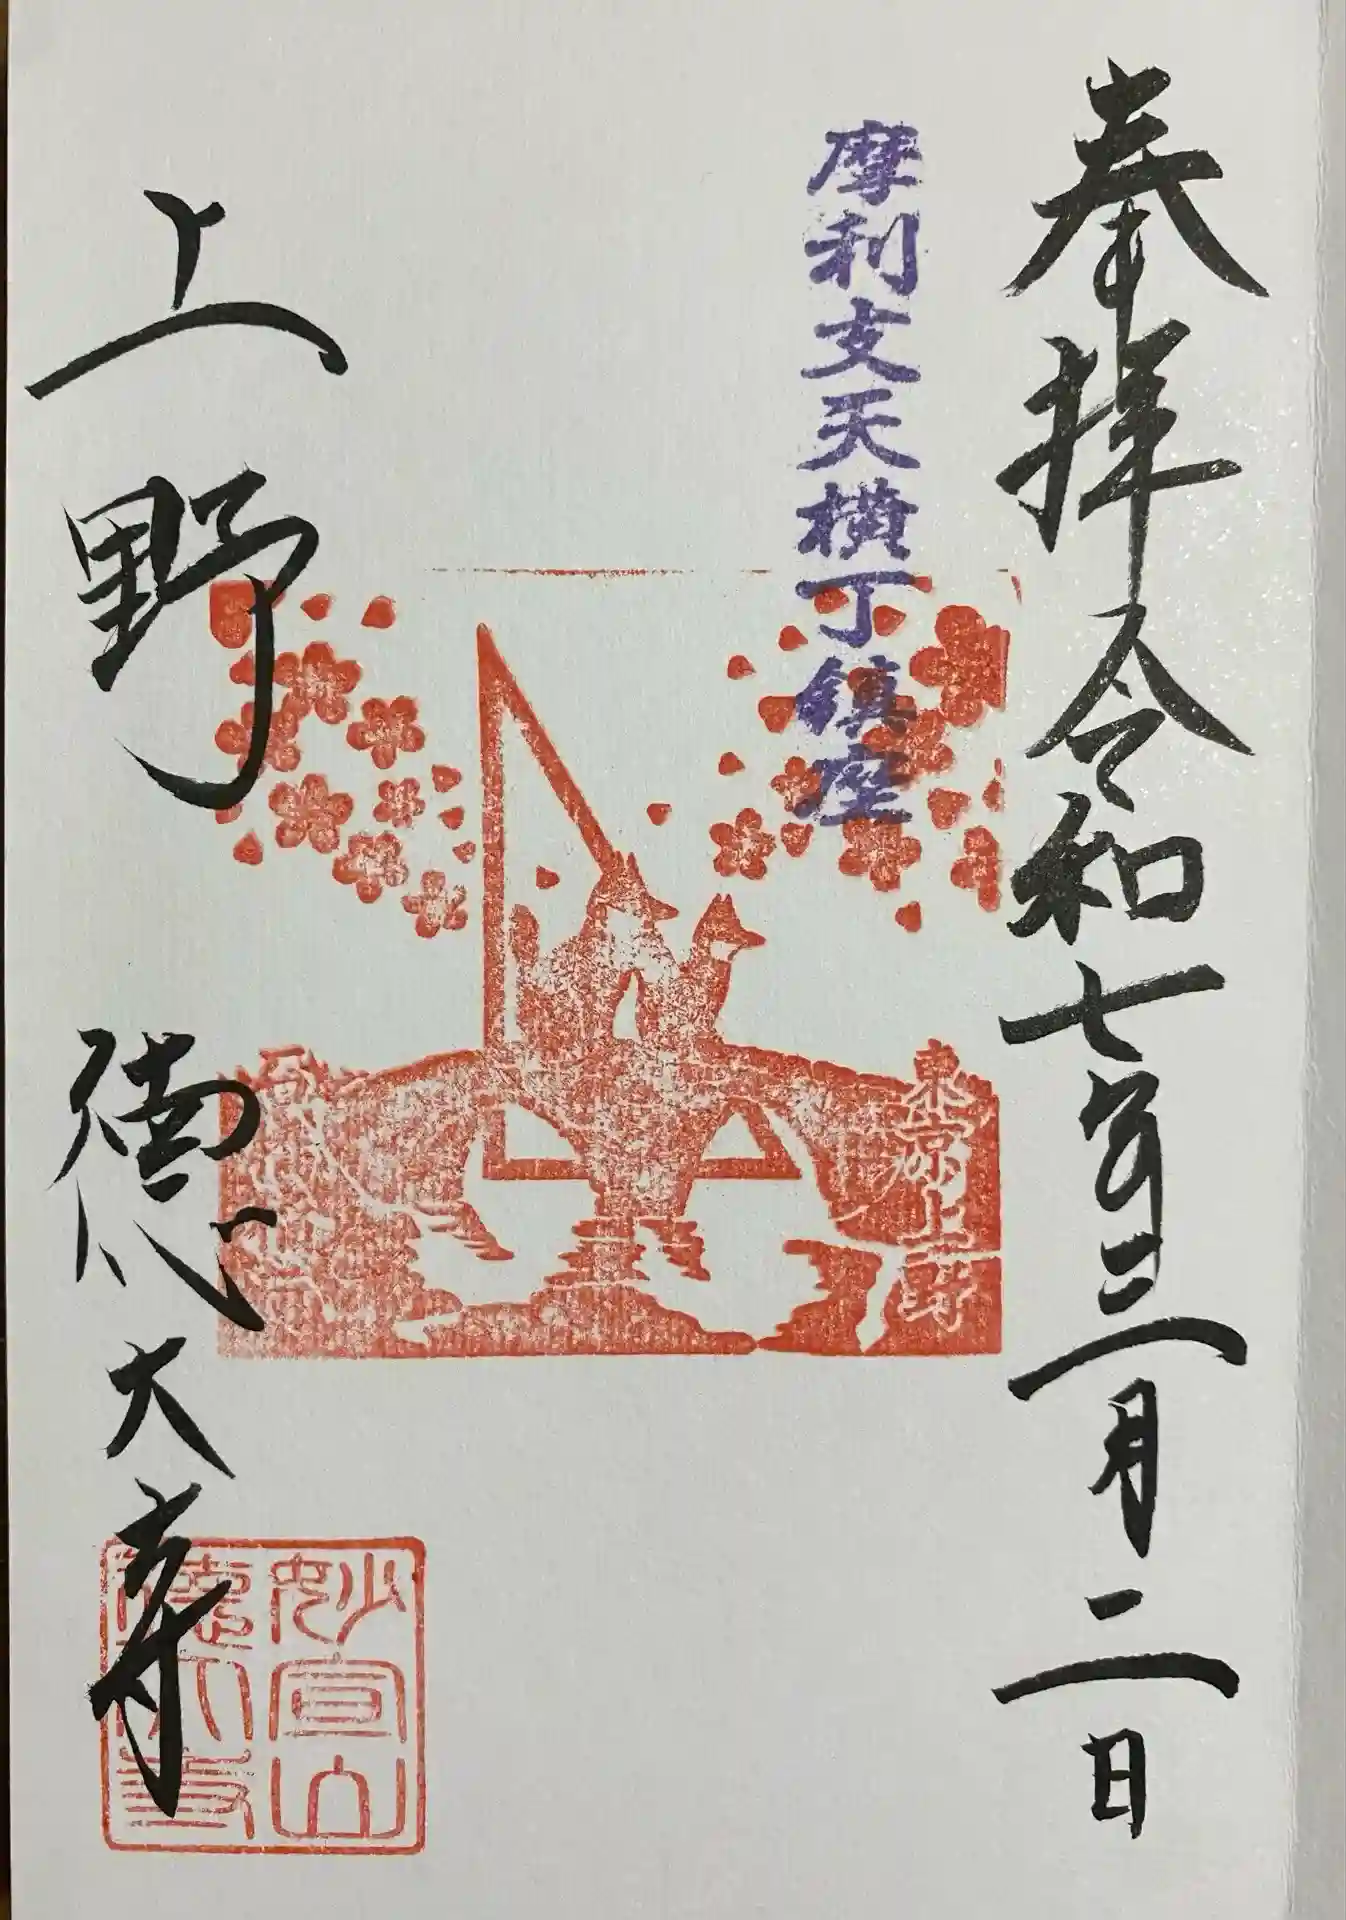 奉拝令和七年三月二日
摩利支天横丁鎮座
東京上野
上野 徳大寺
妙宣山
徳大寺